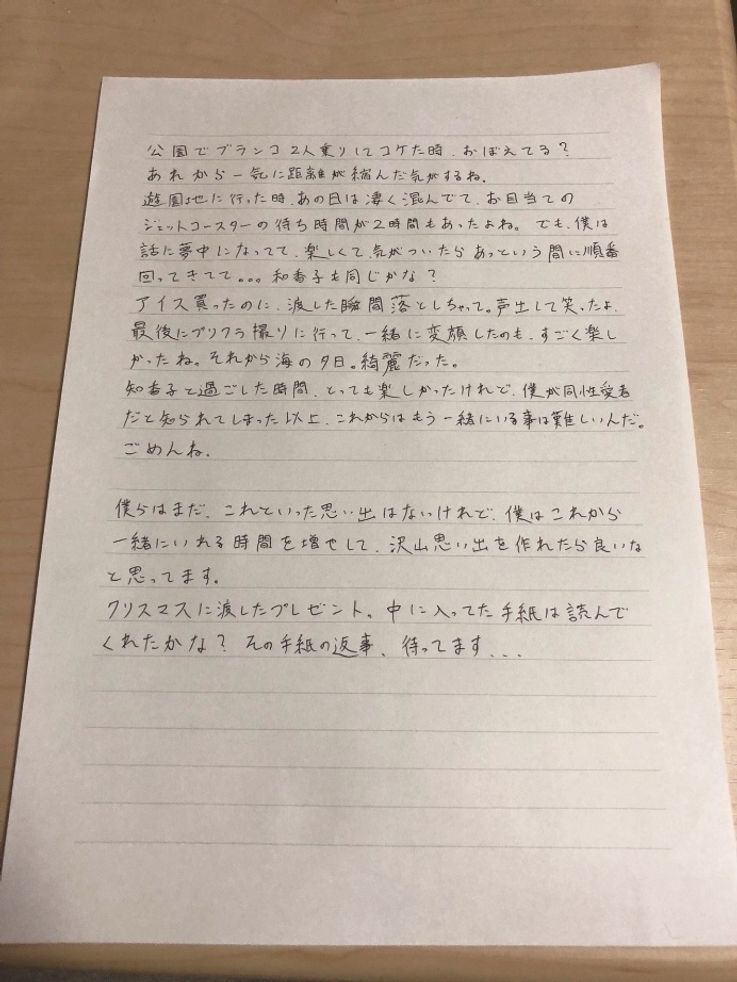 公園でブランコ2人乗りしてコケた時、おぼえてる？
あれから一気に距離が縮んだ気がするね。
遊園地に行った時、あの日は凄く混んでて、お目当ての
ジェットコースターの待ち時間が2時間もあったよね。でも、僕は
話に夢中になってて、楽しくて、気がついたらあっという間に順番
回ってきてて。。。和香子も同じかな？
アイス買ったのに、渡した瞬間落としちゃって。声出して笑ったよ、
最後にプリクラ撮りに行って、一緒に変顔したのも、すごく楽し
かったね。それから海の夕日。綺麗だった。
知香子と過ごした時間、とっても楽しかったけれど、僕が同性愛者
だと知られてしまった以上、これからはもう一緒にいる事は難しいんだ。
ごめんね、
僕らはまだ、これといった思い出はないけれど、僕はこれから
一緒にいれる時間を増やして、沢山思い出を作れたら良いな
と思ってます。
クリスマスに渡したプレゼント。中に入ってた手紙は読んで
くれたかな？その手紙の返事、待ってます...